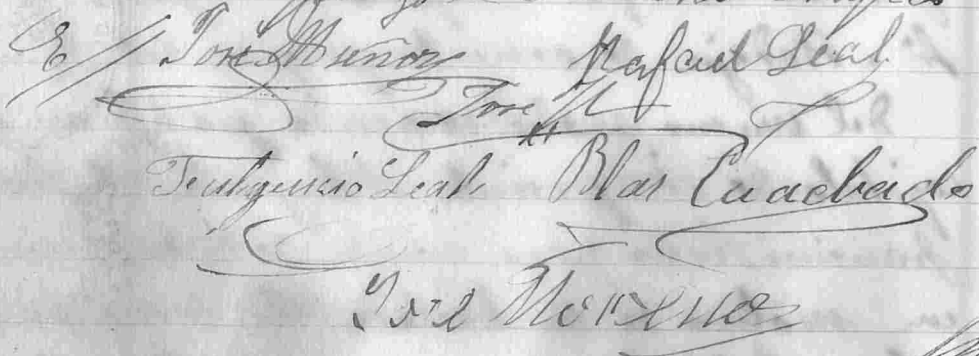 José Muñoz Rafael Leal
José M
Fulgencio Leal Blas Cuadrado
José Moreno